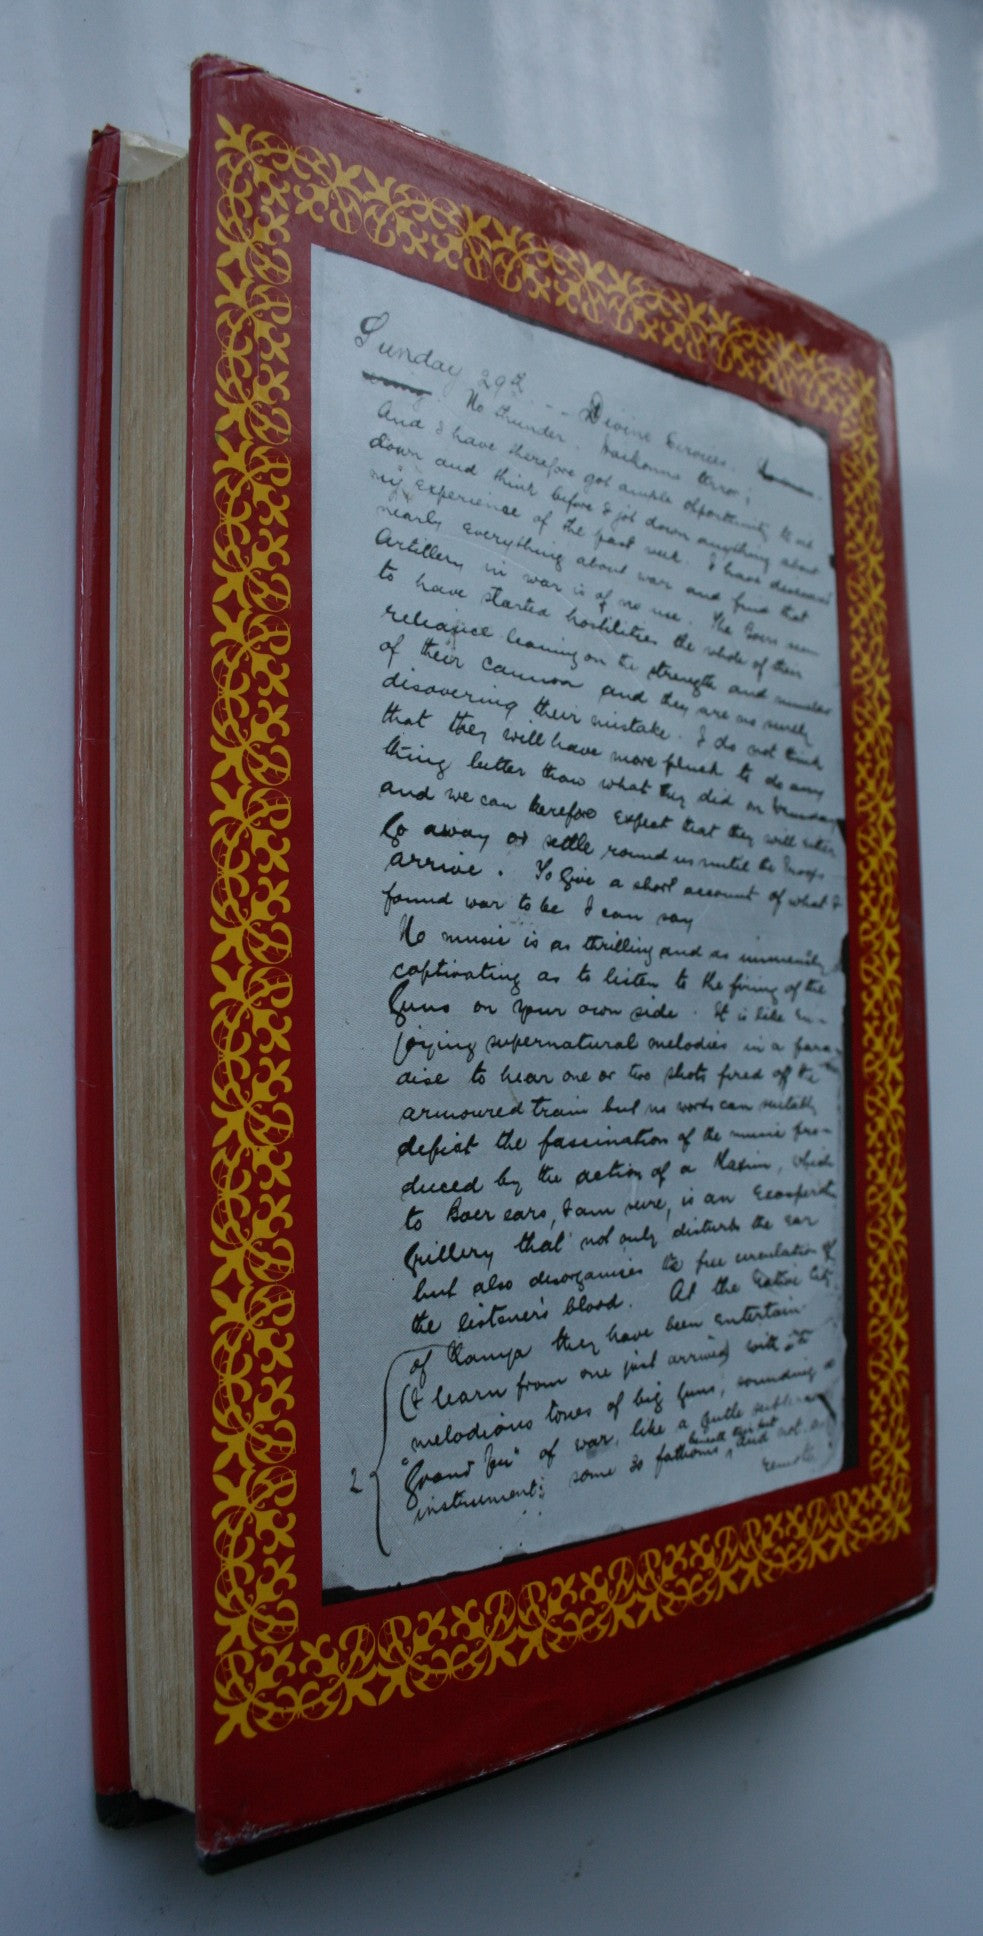 Sunday 29th -- Divine Services.
No thunder. Haikonna terror;
And I have therefore got ample opportunity to sit
down and think before I jot down anything about
my experience of the past week. I have discovered
nearly everything about war and find that
Artillery in war is of no use. The Boers seem
to have started hostilities the whole of their
reliance leaning on the strength and number
of their cannon and they are now surely
discovering their mistake. I do not think
that they will have more pluck to do any
thing better than what they did on
and we can therefore expect that they will either
Go away or settle round us until the Troops
arrive. To Give a short account of what I
found war to be I can say
No music is as thrilling and as immensely
captivating as to listen to the firing of the
Guns on your own side. It is like en-
joying supernatural melodies in a para-
dise to hear one or two shots fired off the
armoured train but no words can suitably
depict the fascination of the music pro-
duced by the action of a Maxim, which
to Boer ears, I am sure, is an
that not only disturbs the ear
but also disorganises the free circulation of
the listener's blood. At the Native City
of Kanya they have been entertain-
(I learn from one just arrived) with the
melodious tones of big Guns, sounding
"Grand " of war, like a
instrument; some 30 fathoms beneath their feet and not
remote
2